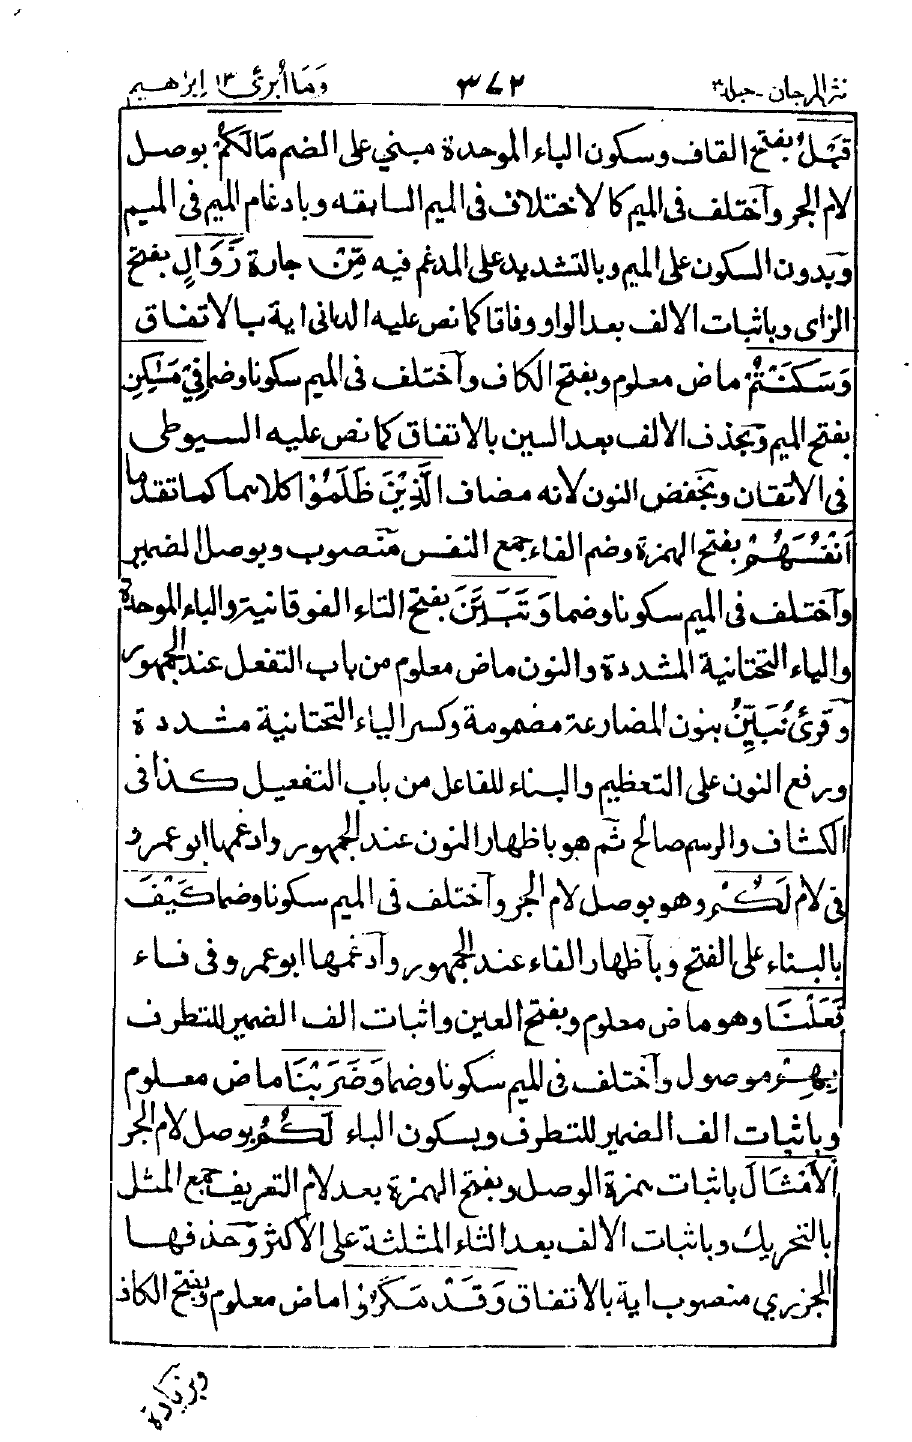 نثر المرجان - جلد ٣ ٣٧٢ وَمَا أُبَرِّئُ ١٣ اِبْرٰهيم
قَبْلُ بفتح القاف وسكون الباء الموحدة مبني على الضم مَا لَكُمْ بوصل
لام الجر وآختلف فى الميم كالاختلاف فى الميم السابقه وبادغام الميم فى الميم
وبدون السكون على الميم وبالتشديد على المدغم فيه مِّنْ جارة زَوَالٍ بفتح
الزاى وباثبات الالف بعد الواو وفاقا كما نص عليه الدانى اية بالاتفاق
وَسَكَنْتُمْ ماض معلوم وبفتح الكاف وآختلف فى الميم سكونا وضما فِيْ مَسٰكِنِ
بفتح الميم وبحذف الالف بعد السين بالاتفاق كما نص عليه السيوطى
فى الاتقان وبخفض النون لانه مضاف الَّذِيْنَ ظَلَمُوْا كلاهما كما تقدما
اَنْفُسَهُمْ بفتح الهمزة وضم الفاء جمع النفس منصوب وبوصل الضمير
وآختلف فى الميم سكونا وضما وَتَبَيَّنَ بفتح التاء الفوقانية والباء الموحدة
والياء التحتانية المشددة والنون ماض معلوم من باب التفعل عند الجمهور
وقرئ نُبَيِّنُ بنون المضارعة مضمومة وكسر الياء التحتانية مشددة
وبرفع النون على التعظيم والبناء للفاعل من باب التفعيل كذا فى
الكشاف والرسم صالح ثم هو باظهار النون عند الجمهور وادغمها ابو عمرو
فى لام لَكُمْ وهو بوصل لام الجر وآختلف فى الميم سكونا وضما كَيْفَ
بالبناء على الفتح وبآظهار الفاء عند الجمهور وآدغمها ابو عمرو فى فاء
فَعَلْنَا وهو ماض معلوم وبفتح العين واثبات الف الضمير للتطرف
بِهِمْ موصول وآختلف فى الميم سكونا وضما وَضَرَبْنَا ماض معلوم
وباثبات الف الضمير للتطرف وبسكون الباء لَكُمُ بوصل لام الجر
الْاَمْثَالَ باثبات همزة الوصل وبفتح الهمزة بعد لام التعريف جمع المثل
بالتحريك وباثبات الالف بعد الثاء المثلثة على الاكثر وحذفها
الجزري منصوب اية بالاتفاق وَقَدْ مَكَرُوْا ماض معلوم وبفتح الكاف
وبزيادة